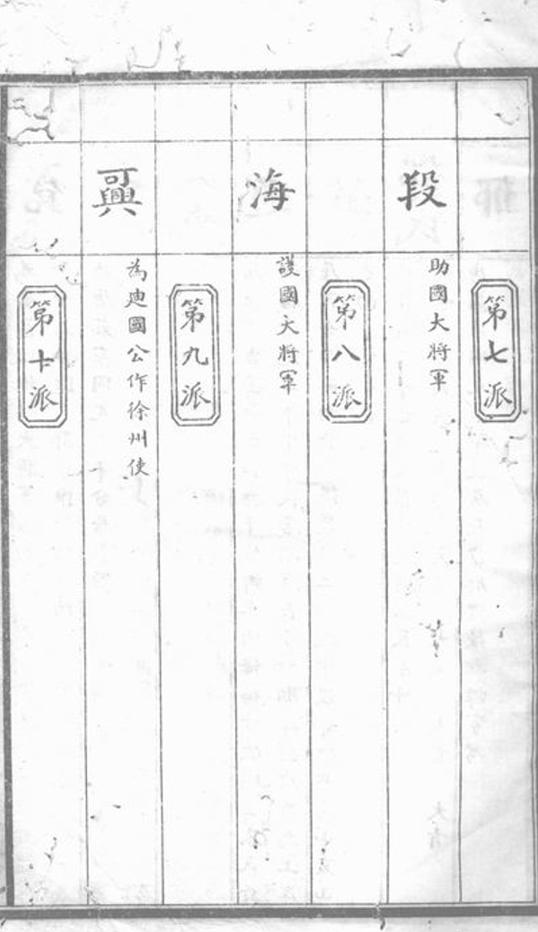 第七派
段
助國大將軍
第八派
海
護國大將軍
第九派
為迪國公作徐州使
第十派